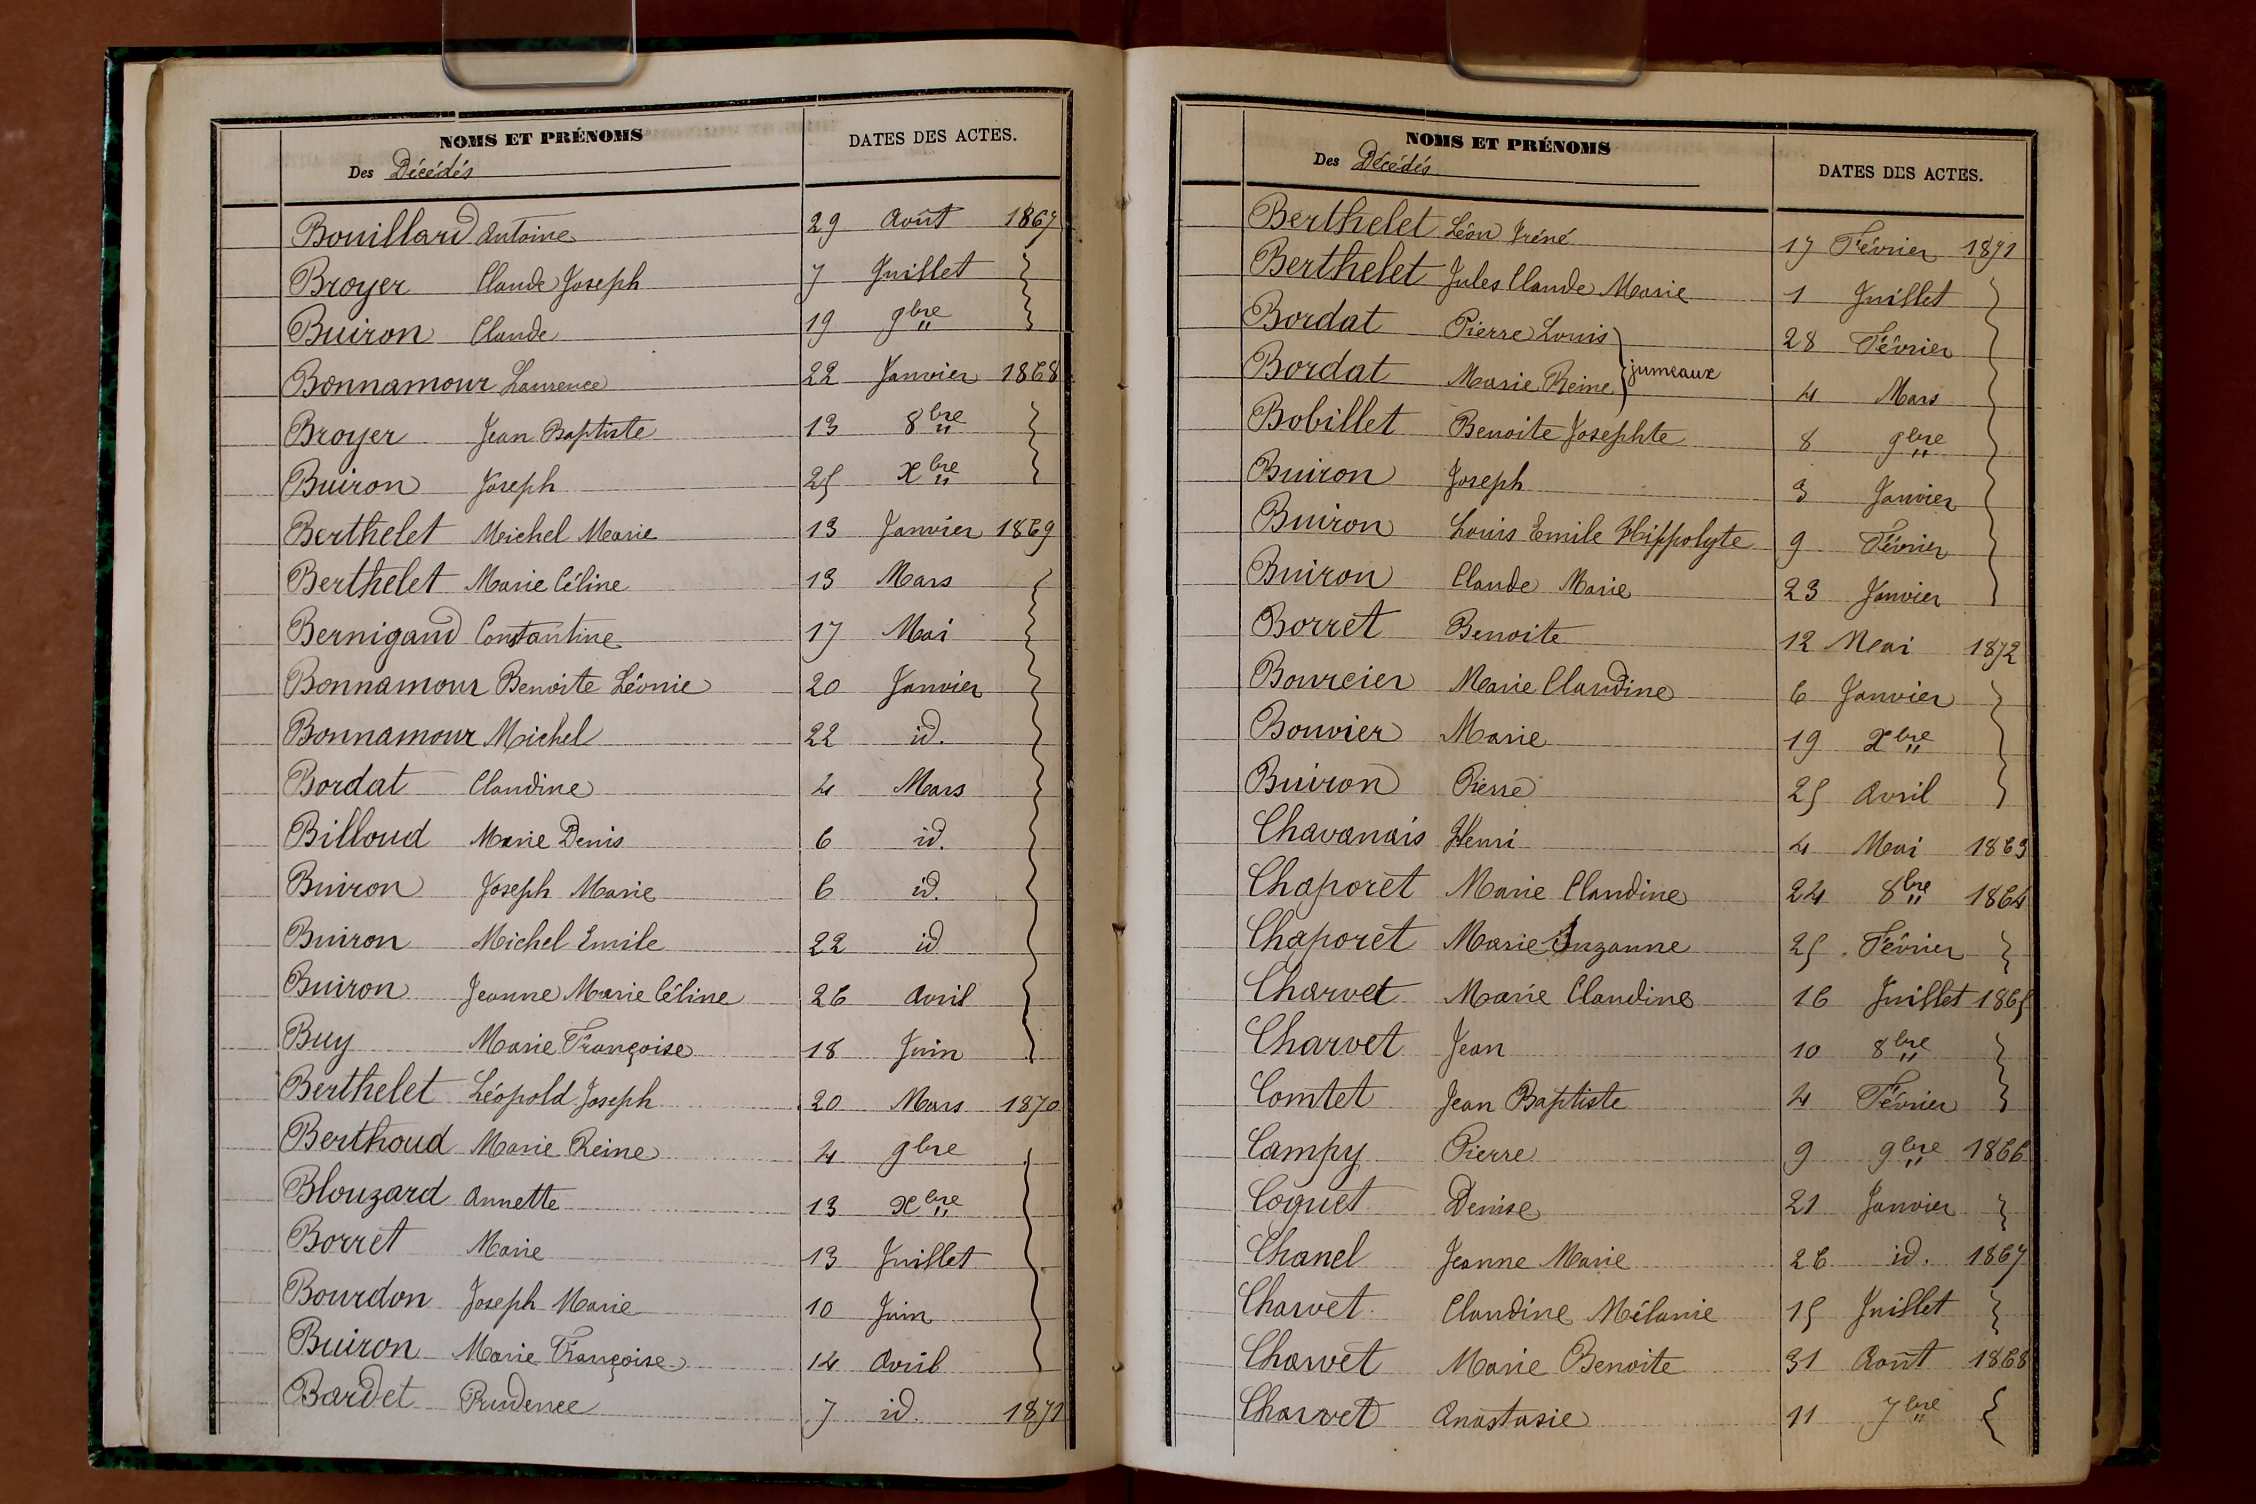 NOMS ET PRÉNOMS
DATES DES ACTES.
Des Décédés
Bouillard Antoine 29 Août 1867
Broyer Claude Joseph 7 Juillet
Buiron Claude 19 9bre
Bonnamour Laurence 22 Janvier 1868
Broyer Jean Baptiste 13 8bre
Buiron Joseph 25 Xbre
Berthelet Michel Marie 13 Janvier 1869
Berthelet Marie Céline 13 Mars
Bernigaud Constantine 17 Mai
Bonnamour Benoite Léonie 20 Janvier
Bonnamour Michel 22 id.
Bordat Claudine 4 Mars
Billoud Marie Denis 6 id.
Buiron Joseph Marie 6 id.
Buiron Michel Emile 22 id
Buiron Jeanne Marie Céline 26 Avril
Buy Marie Françoise 18 Juin
Berthelet Léopold Joseph 20 Mars 1870
Berthoud Marie Reine 4 9bre
Blouzard Annette 13 Xbre
Borret Marie 13 Juillet
Bourdon Joseph Marie 10 Juin
Buiron Marie Françoise 14 Avril
Bardet Prudence 7 id. 1871
NOMS ET PRÉNOMS
Des Décédés
DATES DES ACTES.
Berthelet Léon Iréné 17 Février 1871
Berthelet Jules Claude Marie 1 Juillet
Bordat Pierre Louis 28 Février
jumeaux
Bordat Marie Reine 4 Mars
Bobillet Benoite Josephte 8 9bre
Buiron Joseph 3 Janvier
Buiron Louis Emile Hippolyte 9 Février
Buiron Claude Marie 23 Janvier
Borret Benoite 12 Mai 1872
Bourcier Marie Claudine 6 Janvier
Bouvier Marie 19 Xbre
Buiron Pierre 25 Avril
Chavanais Henri 4 Mai 1863
Chaporet Marie Claudine 24 8bre 1864
Chaporet Marie Suzanne 25 Février
Charvet Marie Claudine 16 Juillet 1865
Charvet Jean 10 8bre
Comtet Jean Baptiste 4 Février
Campy Pierre 9 9bre 1866
Coquet Denise 21 Janvier
Chanel Jeanne Marie 26 id. 1867
Charvet Claudine Mélanie 15 Juillet
Charvet Marie Benoite 31 Août 1868
Charvet Anastasie 11 7bre